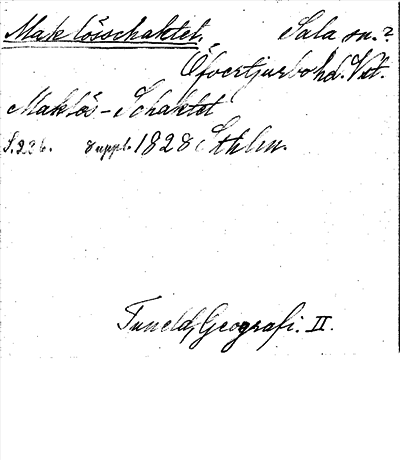 Maklösschaktet. Sala sn.?
Öfvertjurbo hd. Vst.
Maklös-Schaktet
S. 236. uppl. 1828 Sthlm.
Tuneld, Geografi. II.